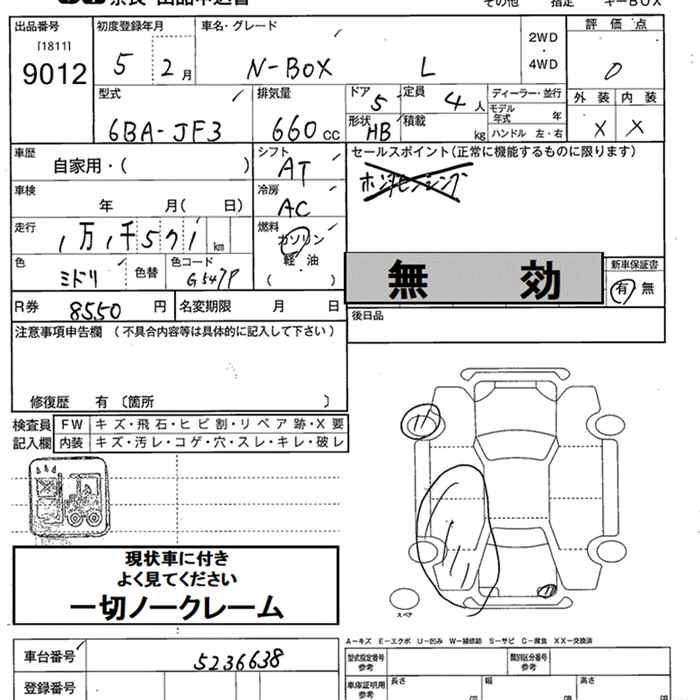 奈良・出品申込書 その他 指定 キーBOX
出品番号 初度登録年月 車名・グレード 評価点
[1811]
9012 5 2月 N-BOX L 2WD・4WD 0
型式 排気量 ドア 5 定員 4人 ディーラー・並行 外装 内装
6BA-JF3 660cc 形状 HB 積載 kg モデル年式 年 × ×
ハンドル 左・右
車歴 自家用・( ) シフト AT セールスポイント(正常に機能するものに限ります)
車検 年 月( 日) 冷房 AC ホンダセンシング
走行 1万1千571km 燃料 ガソリン
軽・油
( )
色 ミドリ 色替 色コード G547P
無効 新車保証書
有 無
R券 8550円 名変期限 月 日 後日品
注意事項申告欄(不具合内容等は具体的に記入して下さい)
修復歴 有〔箇所 〕
検査員記入欄 FW キズ・飛石・ヒビ割・リペア跡・X要
内装 キズ・汚レ・コゲ・穴・スレ・キレ・破レ
現状車に付き
よく見てください
一切ノークレーム
スペア
A-キズ E-エクボ U-凹み W-補修跡 S-サビ C-腐食 XX-交換済
車台番号 5236638 型式指定番号 参考 類別区分番号 参考
登録番号 車庫証明用 参考 長さ 幅 高さ